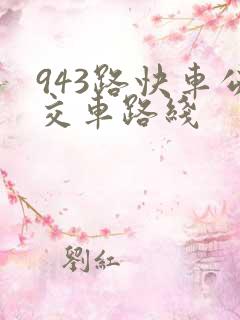 943路快車公
交車路綫
劉紅